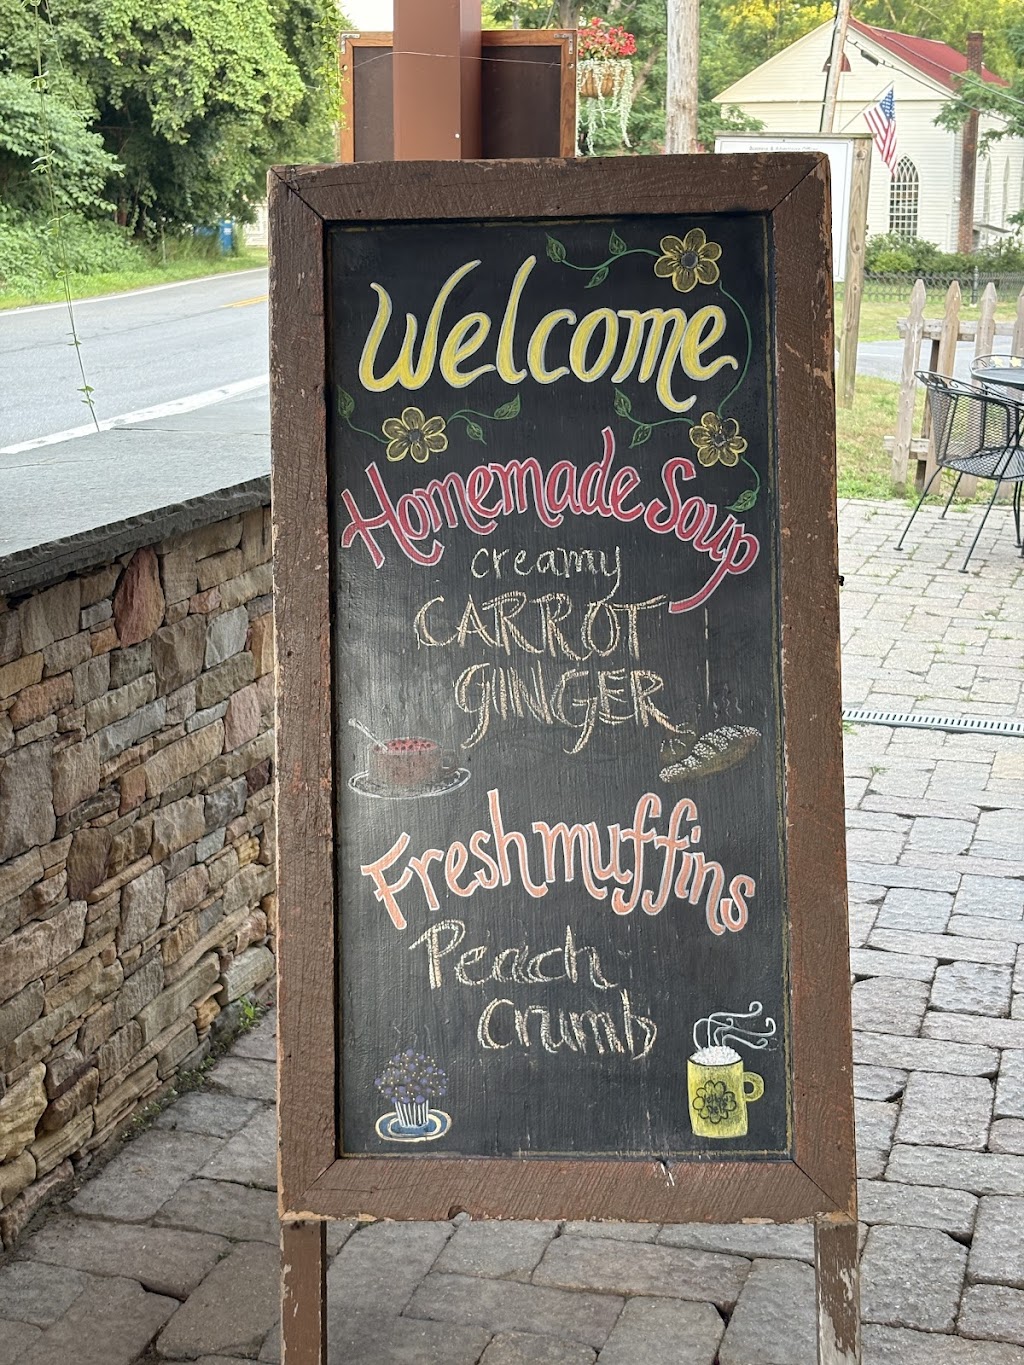 Welcome
Homemade Soup
creamy
CARROT
GINGER
Fresh muffins
Peach
Crumb